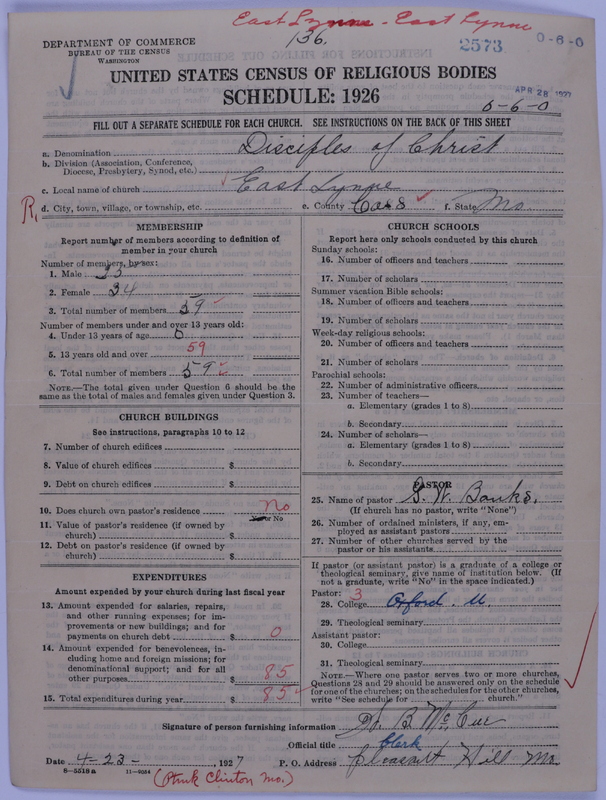 East Lynne - East Lynne
136.
2573
0-6-0
DEPARTMENT OF COMMERCE
BUREAU OF THE CENSUS
WASHINGTON
UNITED STATES CENSUS OF RELIGIOUS BODIES
APR 28 1927
SCHEDULE: 1926
0-6-0
FILL OUT A SEPARATE SCHEDULE FOR EACH CHURCH. SEE INSTRUCTIONS ON THE BACK OF THIS SHEET
a. Denomination Disciples of Christ
b. Division (Association, Conference, Diocese, Presbytery, Synod, etc.)
c. Local name of church East Lynne
R,
d. City, town, village, or township, etc. e. County Cass f. State Mo.
MEMBERSHIP
Report number of members according to definition of member in your church
Number of members, by sex:
1. Male
2. Female 34
3. Total number of members 59
Number of members under and over 13 years old:
4. Under 13 years of age 0
5. 13 years old and over 59
6. Total number of members 59
NOTE.—The total given under Question 6 should be the same as the total of males and females given under Question 3.
CHURCH BUILDINGS
See instructions, paragraphs 10 to 12
7. Number of church edifices
8. Value of church edifices $
9. Debt on church edifices $
10. Does church own pastor's residence No
Yes or No
11. Value of pastor's residence (if owned by church) $
12. Debt on pastor's residence (if owned by church) $
EXPENDITURES
Amount expended by your church during last fiscal year
13. Amount expended for salaries, repairs, and other running expenses; for improvements or new buildings; and for payments on church debt $ 0
14. Amount expended for benevolences, including home and foreign missions; for denominational support; and for all other purposes $ 85
15. Total expenditures during year $ 85
CHURCH SCHOOLS
Report here only schools conducted by this church
Sunday schools:
16. Number of officers and teachers
17. Number of scholars
Summer vacation Bible schools:
18. Number of officers and teachers
19. Number of scholars
Week-day religious schools:
20. Number of officers and teachers
21. Number of scholars
Parochial schools:
22. Number of administrative officers
23. Number of teachers—
a. Elementary (grades 1 to 8)
b. Secondary
24. Number of scholars—
a. Elementary (grades 1 to 8)
b. Secondary
PASTOR
25. Name of pastor G. W. Banks,
(If church has no pastor, write "None")
26. Number of ordained ministers, if any, employed as assistant pastors
27. Number of other churches served by the pastor or his assistants
If pastor (or assistant pastor) is a graduate of a college or theological seminary, give name of institution below. (If not a graduate, write "No" in the space indicated.)
Pastor: 3
28. College Oxford. U.
29. Theological seminary
Assistant pastor:
30. College
31. Theological seminary
NOTE.—Where one pastor serves two or more churches, Questions 28 and 29 should be answered only on the schedule for one of the churches; on the schedules for the other churches, write "See schedule for church."
Signature of person furnishing information B McCue
Official title Clerk
Date 4-23- , 1927 P. O. Address Pleasant Hill Mo.
8-5518a 11-9054
Clinton Mo.)